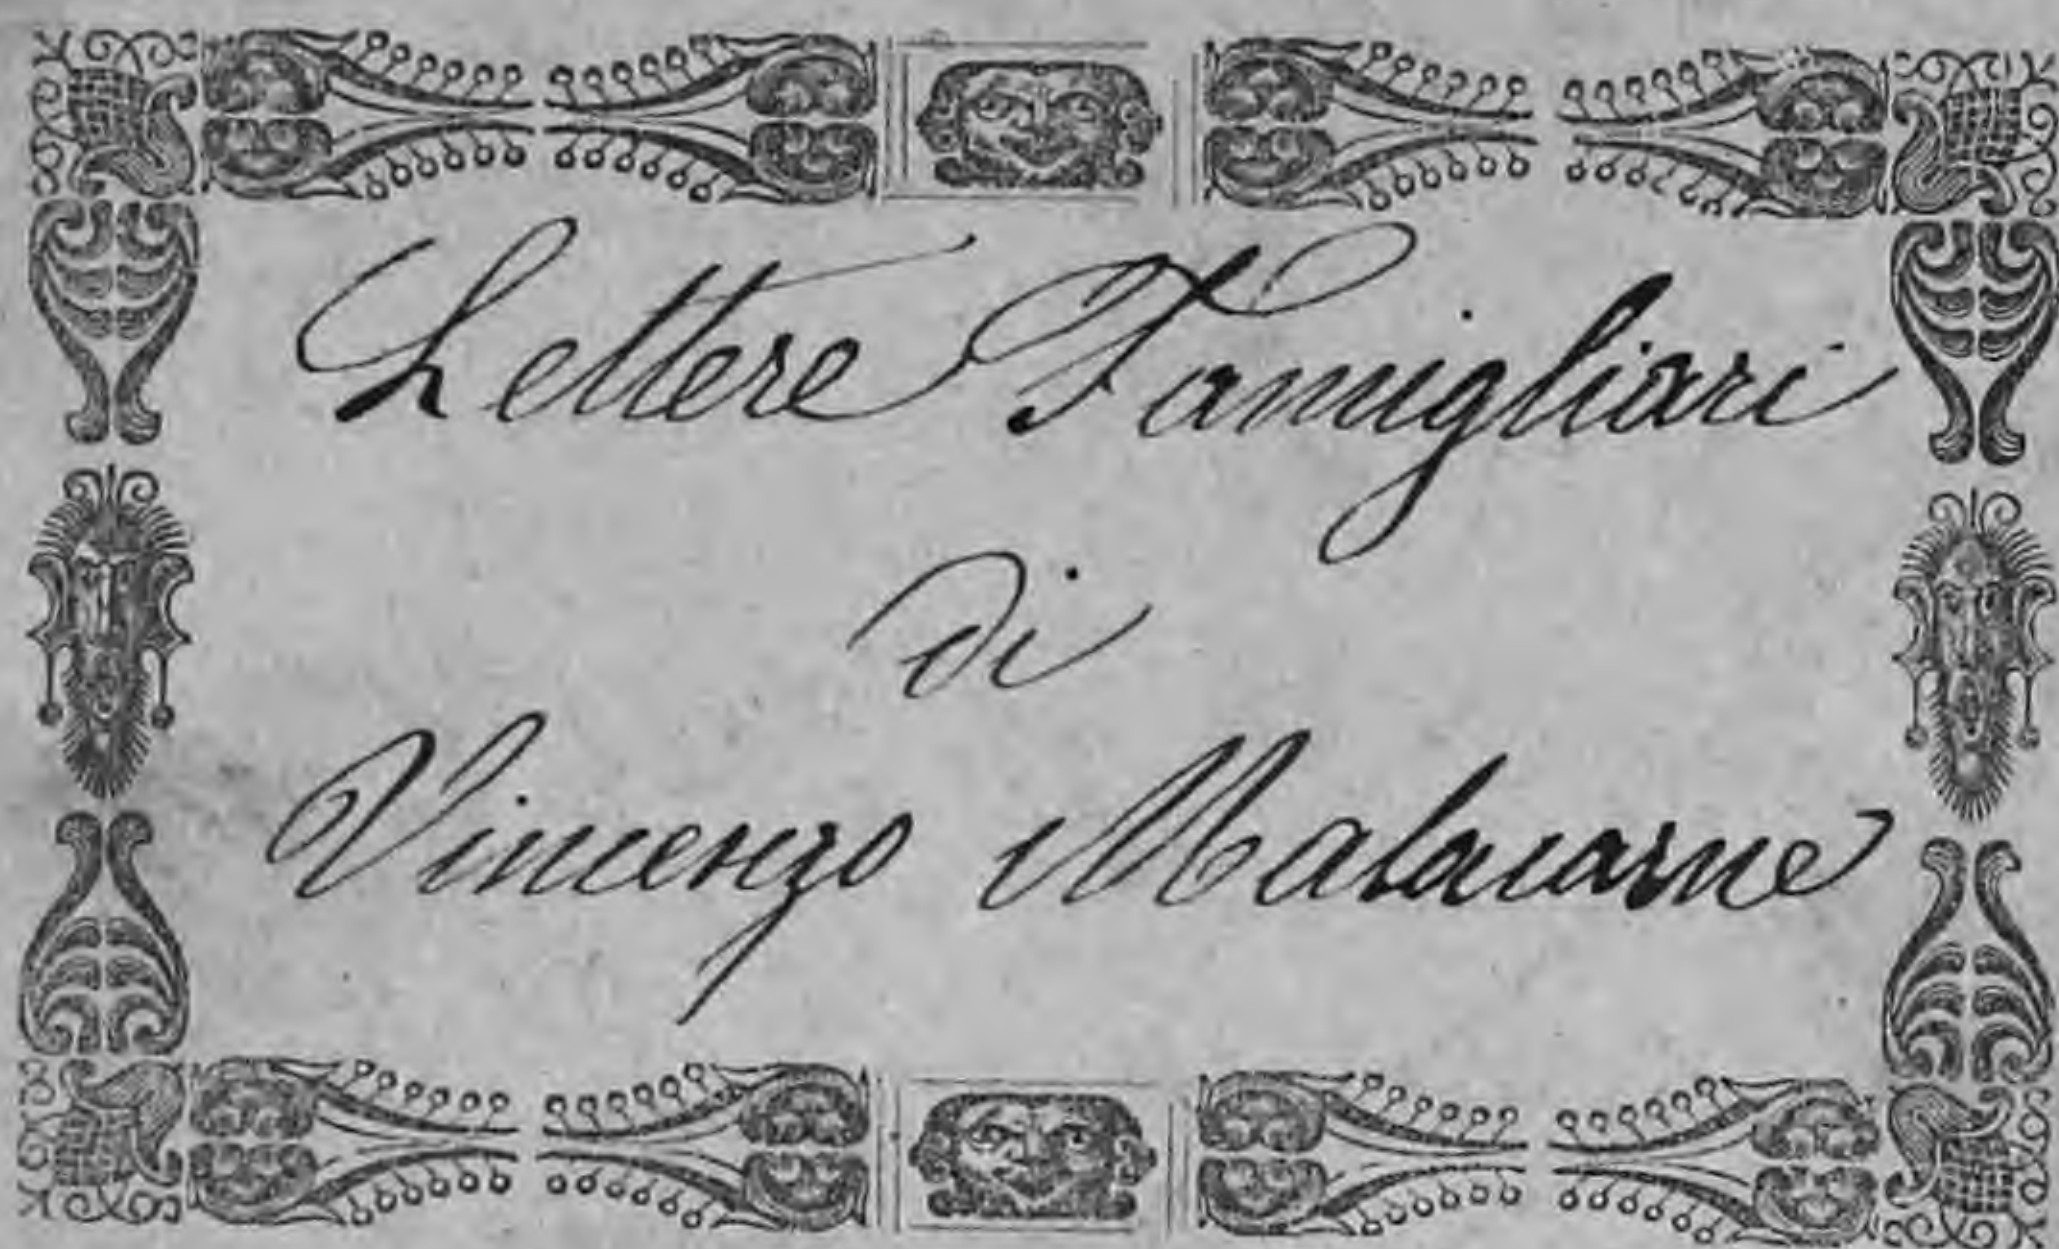 Lettere Famigliari
di
Vincenzo Malacarne